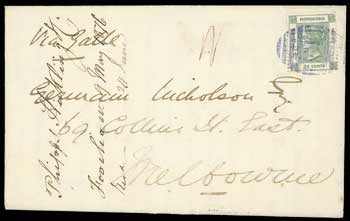 Via Galle
HONGKONG
24 CENTS
Germain Nicholson Esq
69 Collins St. East
Melbourne
Foochow 9 May 1876